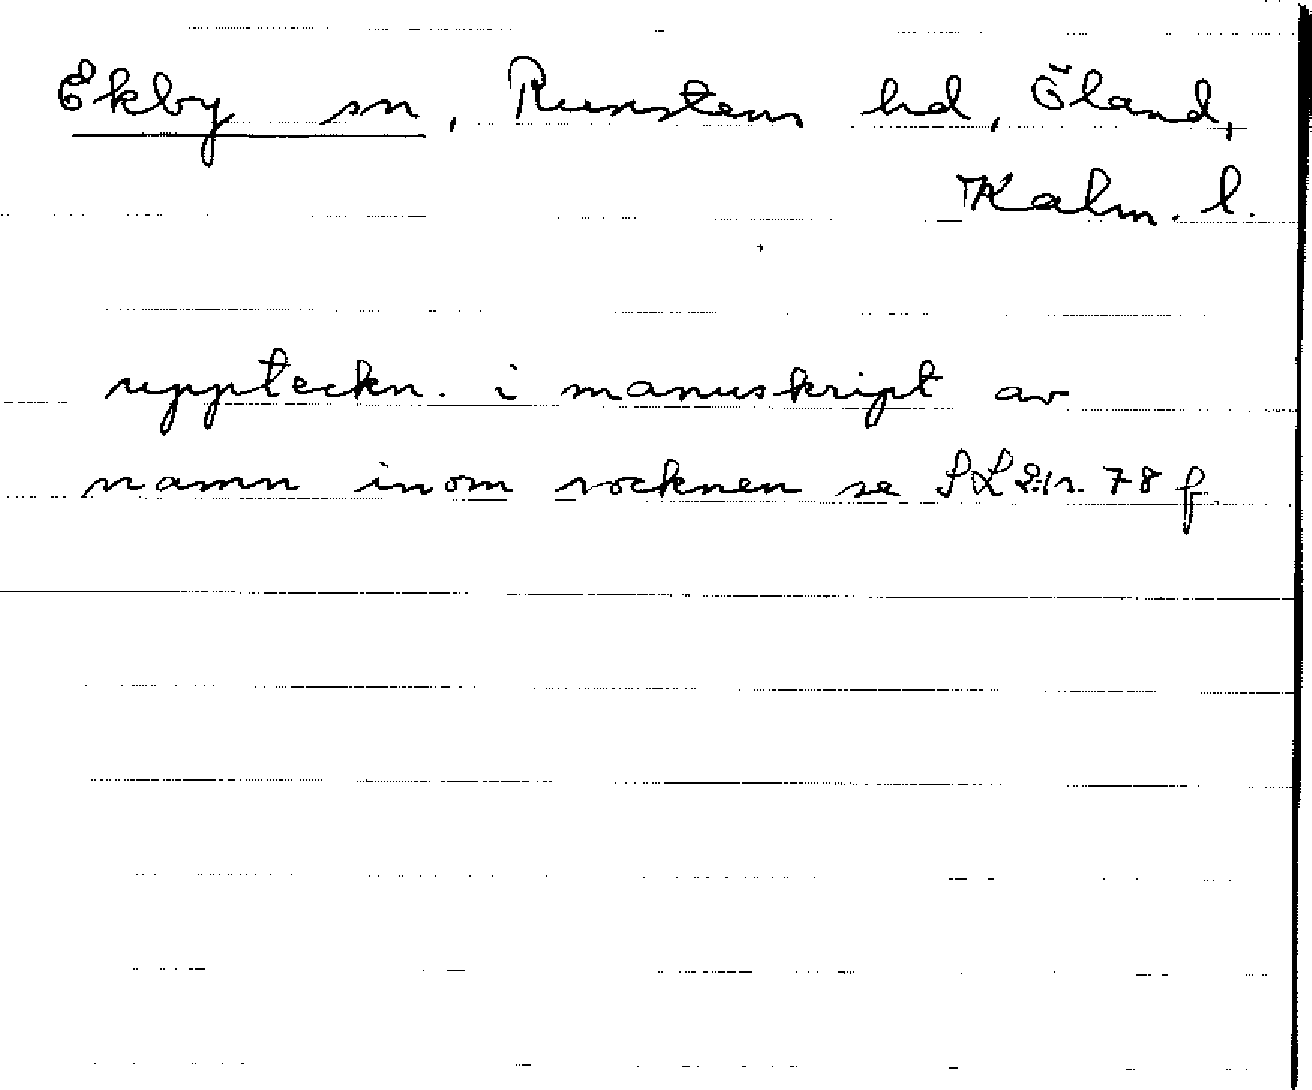 Ekby sn, Runstens hd, Öland,
Kalm. l.
uppteckn. i manuskript av
namn inom socknen se 78 f